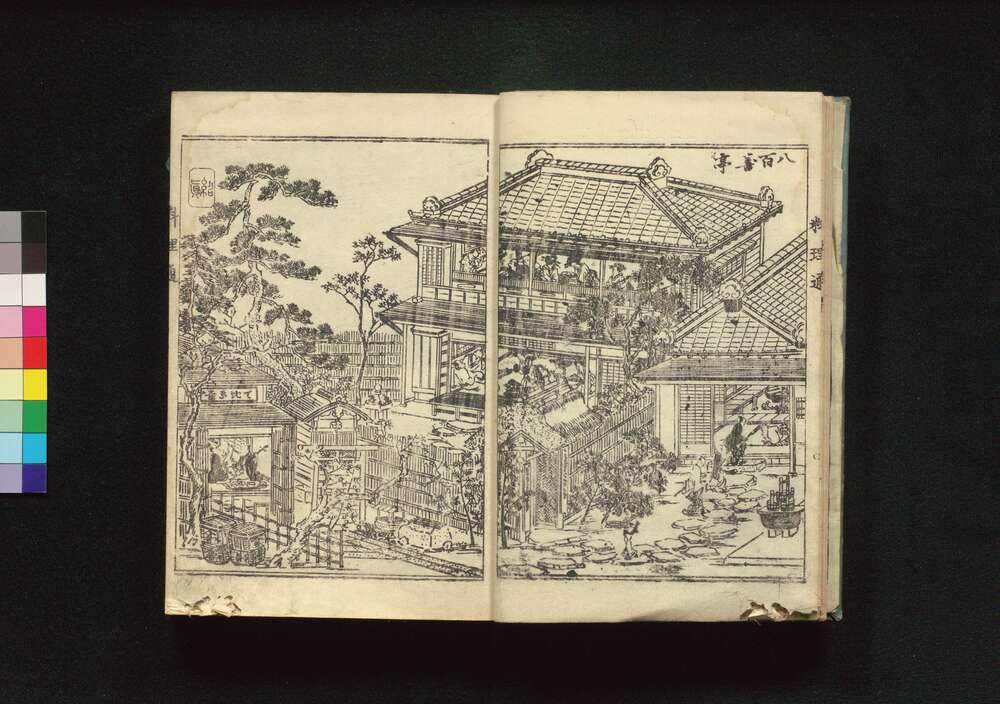 八百善亭
料理通
紹眞
料理通